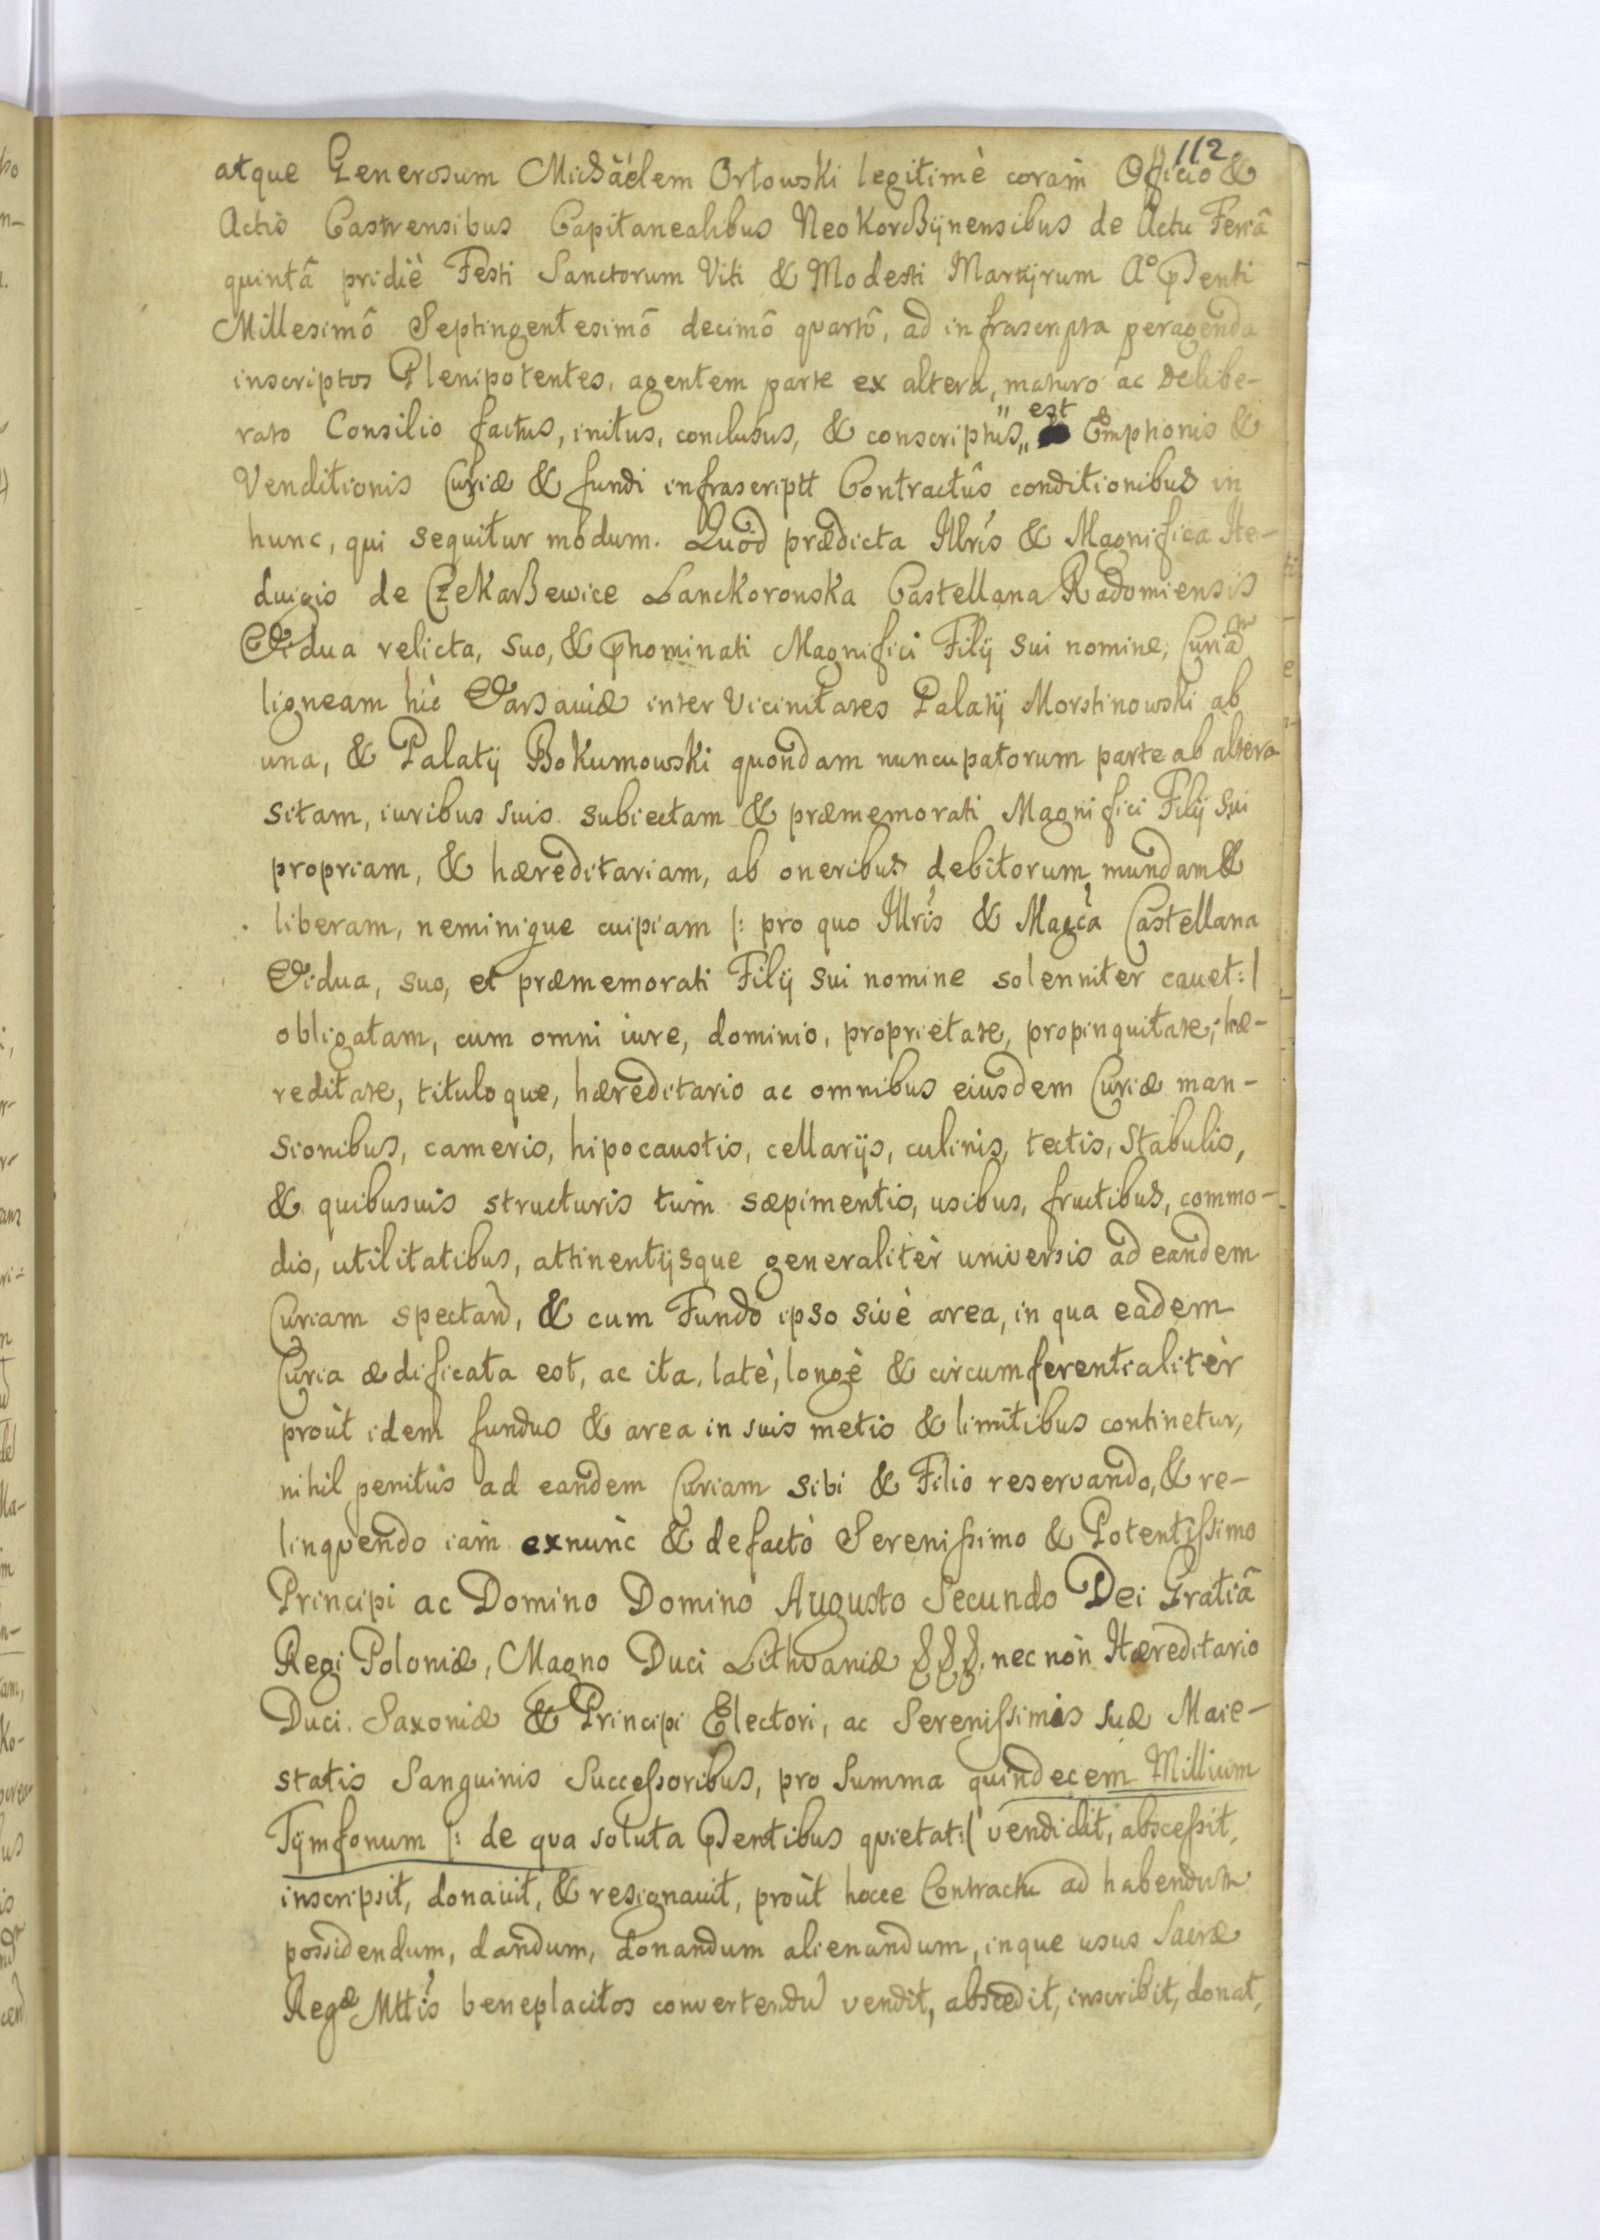 112
atque Generosum Michäélem Orłowski legitimè coram̀ Officio &
Actis Castrensibus Capitanealibus NeoKorcßÿnensibus de Actu Feriâ
quintâ pridiè Festi Sanctorum Viti & Modesti Martÿrum A° pſenti
Millesimô Septingentesimô decimô quartô, ad infrascripta peragenda
inscriptos Plenipotentes, agentem parte ex altera, maturo ac Delibe-
rato Consilio factus, initus, conclusus, & conscriptus„ est Emptionis &
Venditionis Curiæ & fundi infrascriptt Contractûs conditionibus in
hunc, qui sequitur modum. Quòd prædicta Illrìs & Magnifica He-
duigis de CzeKarßewice Lanckoronska Castellana Radomiensis
Vidua relicta, suo, & pnominati Magnifici Filÿ sui nomine, Curiam
ligneam hìc Varsaviæ inter Vicinitates Palatÿ Morstinowski ab
una, & Palatÿ BoKumowski quondam nuncupatorum parte ab altera
sitam, iuribus suis subiectam & præmemorati Magnifici Filÿ sui
propriam, & hæreditariam, ab oneribus debitorum mundam &
liberam, neminique cuipiam |: pro quo Illrìs & Magcà Castellana
Vidua, suo, et præmemorati Filÿ sui nomine solenniter cauet:|
obligatam, cum omni iure, dominio, proprietate, propinquitate, hæ-
reditate, tituloque, hæreditario ac omnibus eiusdem Curiæ man-
sionibus, cameris, hipocaustis, cellarÿs, culinis, tectis, Stabulis,
& quibusuis structuris tum̀ sæpimentis, usibus, fructibus, commo-
dis, utilitatibus, attinentÿsque generalitèr universis ad eandem
Curiam spectand, & cum Fundò ipso sivè area, in qua eadem
Curia ædificata est, ac ita, latè, longè & circumferentialitèr
proùt idem fundus & area in suis metis & limitibus continetur,
nihil penitùs ad eandem Curiam sibi & Filio reservando, & re-
linquendo iam̀ exnùnc & defactò Serenissimo & Potentissimo
Principi ac Domino Domino Augusto Secundo Dei Gratiâ
Regi Poloniæ, Magno Duci Lithvaniæ &&&. nec nòn Hæreditario
Duci Saxoniæ & Principi Electori, ac Serenissimis suæ Maie-
statis Sanguinis Successoribus, pro Summa quindecem Millium
Tÿmfonum |: de qua soluta pſentibus quietat:| vendidit, abscessit,
inscripsit, donauit, & resignauit, proùt hocce Contractu ad habendum
possidendum, dandum, donandum alienandum, inque usus Sacræ
Regæ Mttìs beneplacitos convertendu vendit, abscedit, inscribit, donat,